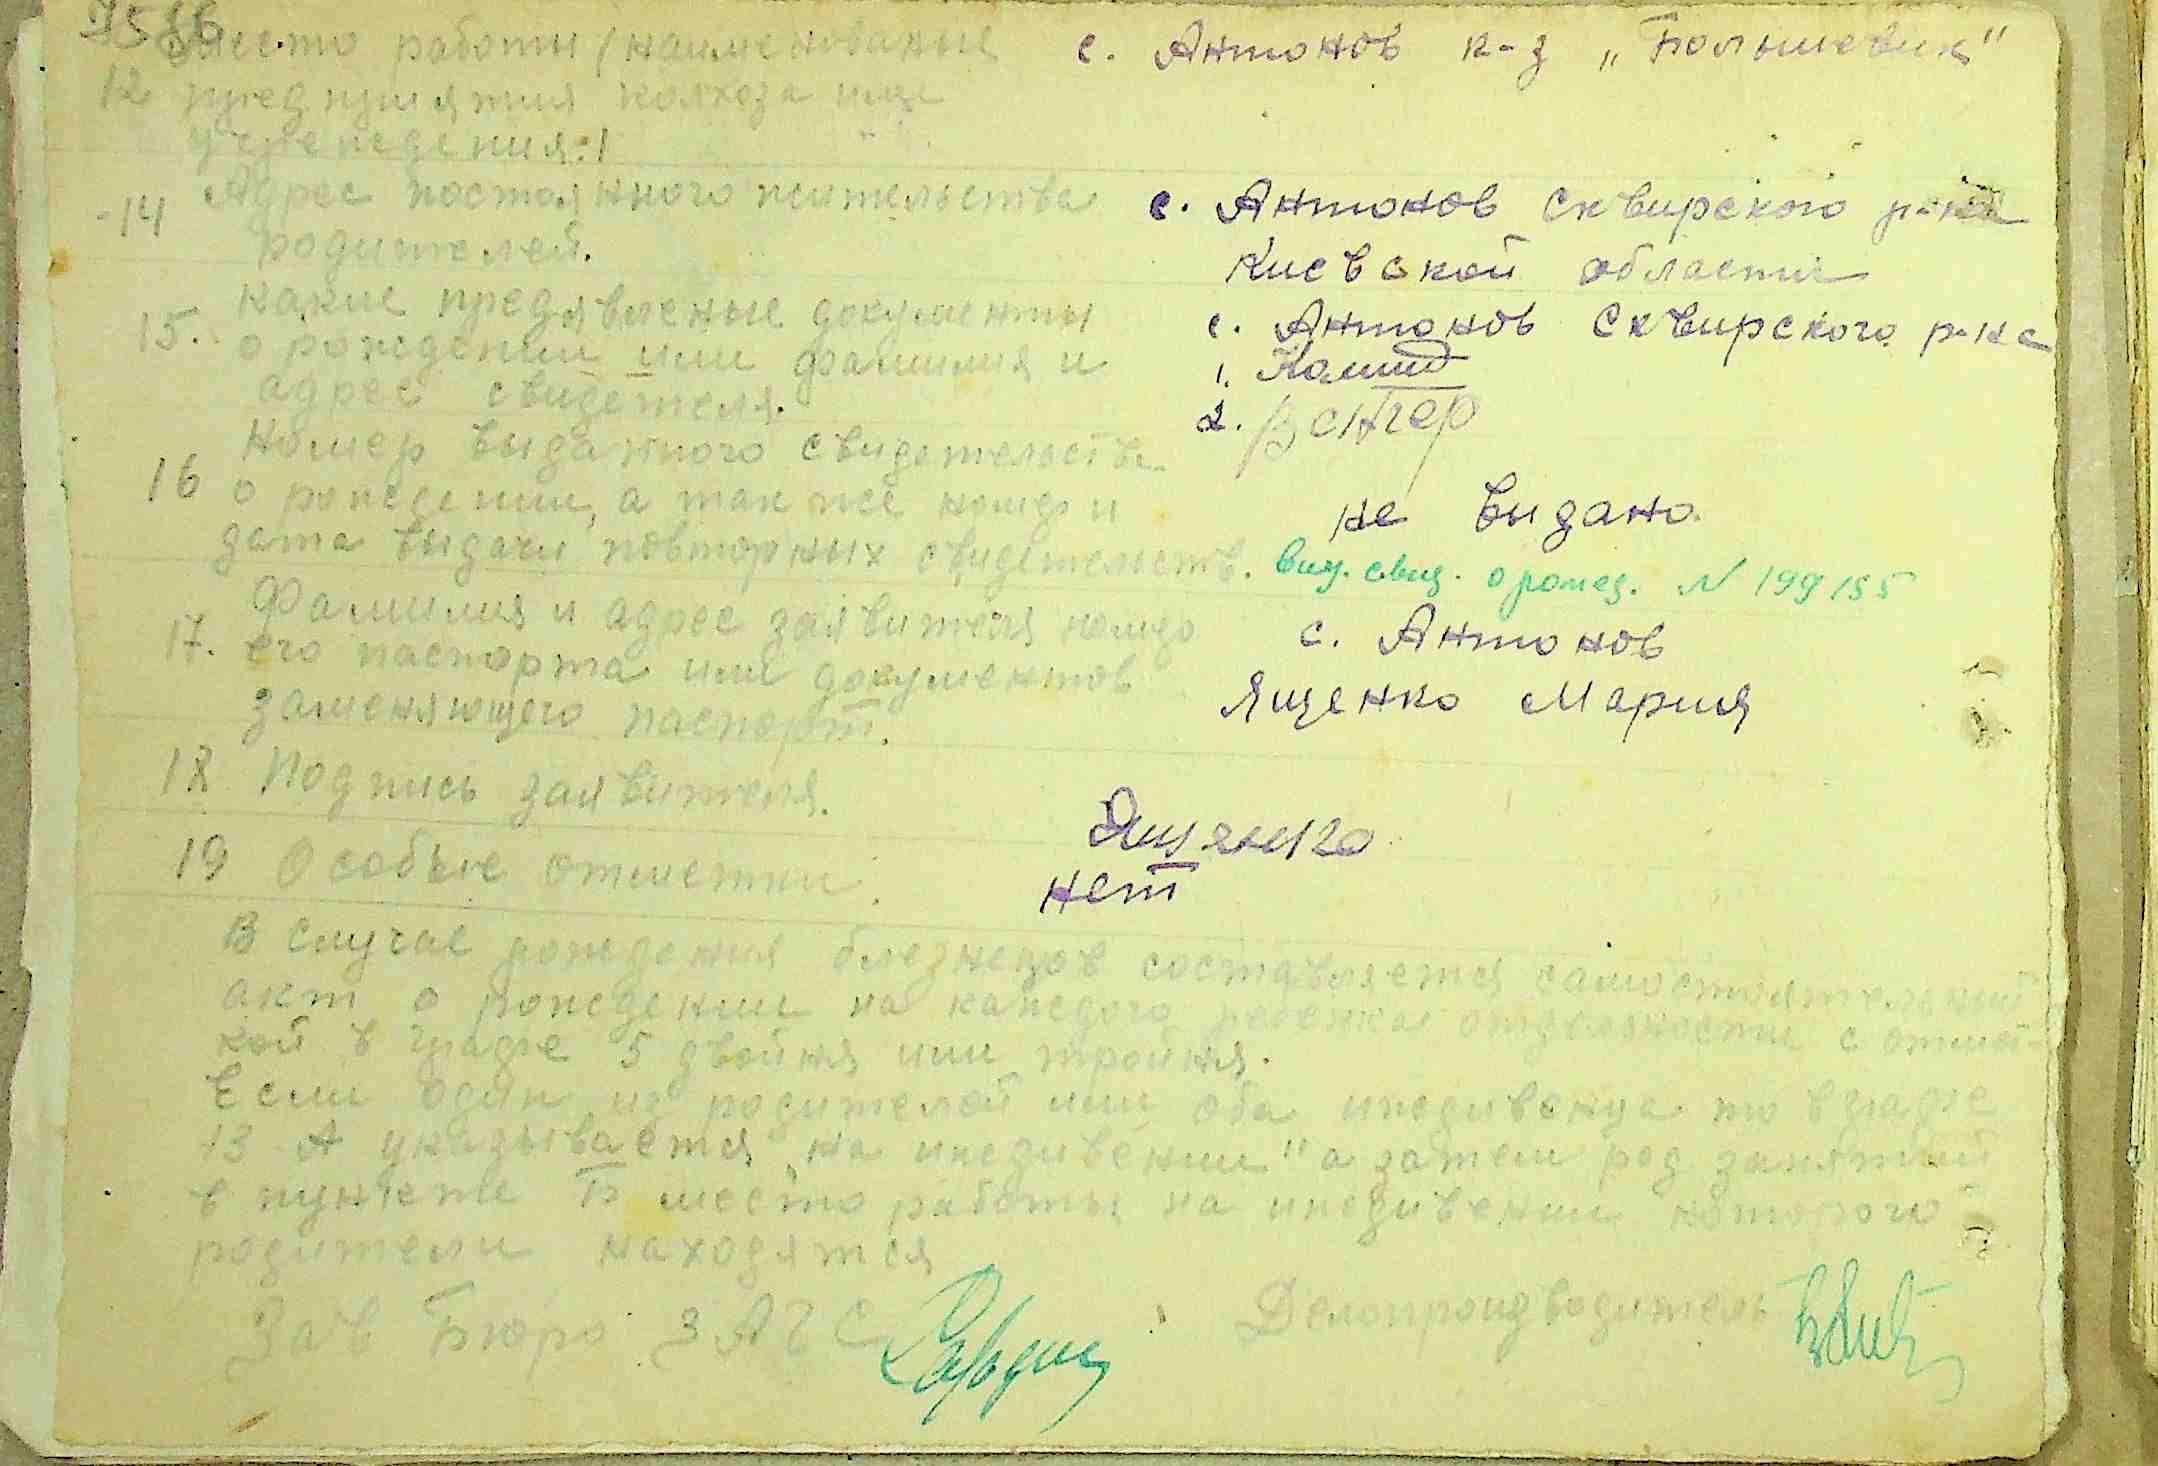 место работы (наименованые с. Антонов к-з „Большевик"
12 предприятия колхоза или
учреждения:)
14 Адрес постоянного жительства с. Антонов Сквирского р-на
родителей. Киевской области
15. какие предявленые документы с. Антонов Сквирского р-на
о рождении или фамилия и 1.
адрес свидетеля. 2.
16 Номер выданного свидетельства
о рождении, а так же номер и не выдано.
дата выдачи повторных свидетельств. выд. свид. о рожд. N 199155
17. Фамилия и адрес заявителя номер с. Антонов
его паспорта или документов
заменяющего паспорт. Ященко Мария
18 Подпись заявителя. Ященко
19 Особые отметки. нет
В случае рождения близнецов составляется самостоятельный
акт о рождении на каждого ребенка отдельности с отмет-
кой в графе 5 двойня или тройня.
Если один из родителей или оба иждивенца то в графе
13 А указывается „на иждивении" а затем род занятий
в пункте Б место работы на иждивении которого
родители находятся
Зав Бюро ЗАГС Делопроизводитель